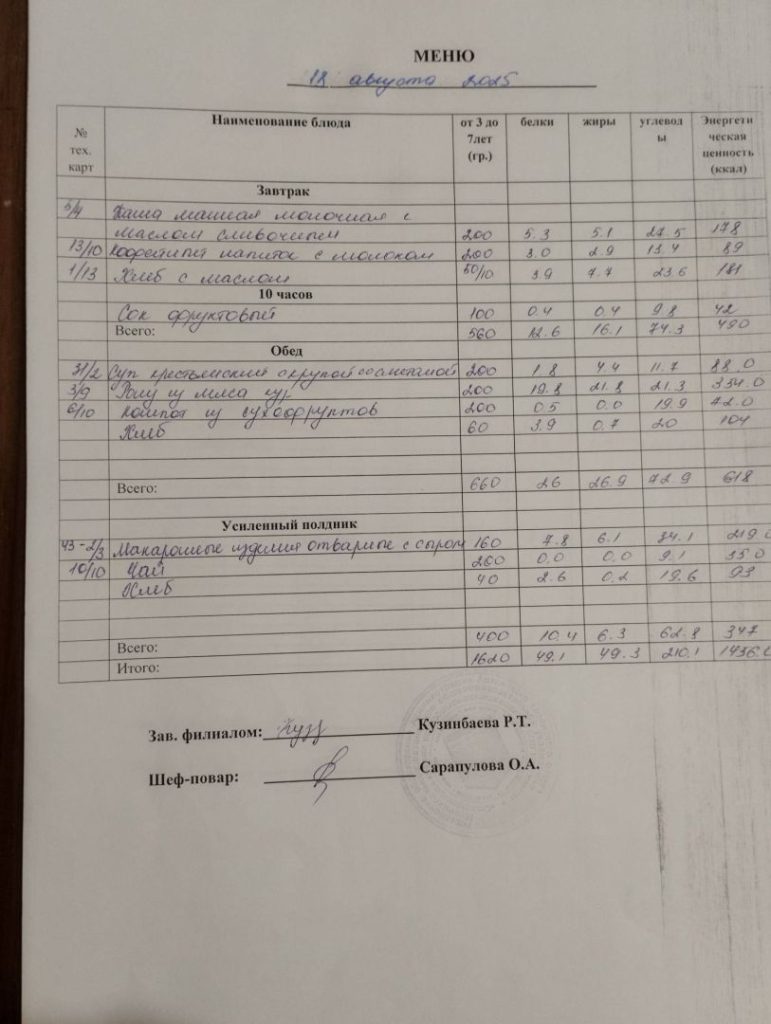 МЕНЮ
18 августа 2025
№ тех. карт Наименование блюда от 3 до 7лет (гр.) белки жиры углевод ы Энергети ческая ценность (ккал)
Завтрак
5/4 Каша манная молочная с
маслом сливочным 200 5.3 5.1 27.5 178
13/10 Кофейный напиток с молоком 200 3.0 2.9 13.4 89
1/13 Хлеб с маслом 50/10 3.9 7.7 23.6 181
10 часов
Сок фруктовый 100 0.4 0.4 9.8 42
Всего: 560 12.6 16.1 74.3 490
Обед
31/2 Суп крестьянский с крупой со сметаной 200 1.8 4.4 11.7 88.0
3/9 из мяса кур 200 19.8 21.8 21.3 354.0
6/10 Компот из сухофруктов 200 0.5 0.0 19.9 72.0
Хлеб 60 3.9 0.7 20 104
Всего: 660 26 26.9 72.9 618
Усиленный полдник
43-2/3 Макаронные изделия отварные с сыром 160 7.8 6.1 34.1 219.0
10/10 Чай 200 0.0 0.0 9.1 35.0
Хлеб 40 2.6 0.2 19.6 93
Всего: 400 10.4 6.3 62.8 347
Итого: 1620 49.1 49.3 210.1 1436.0
Зав. филиалом: Кузинбаева Р.Т.
Шеф-повар: Сарапулова О.А.